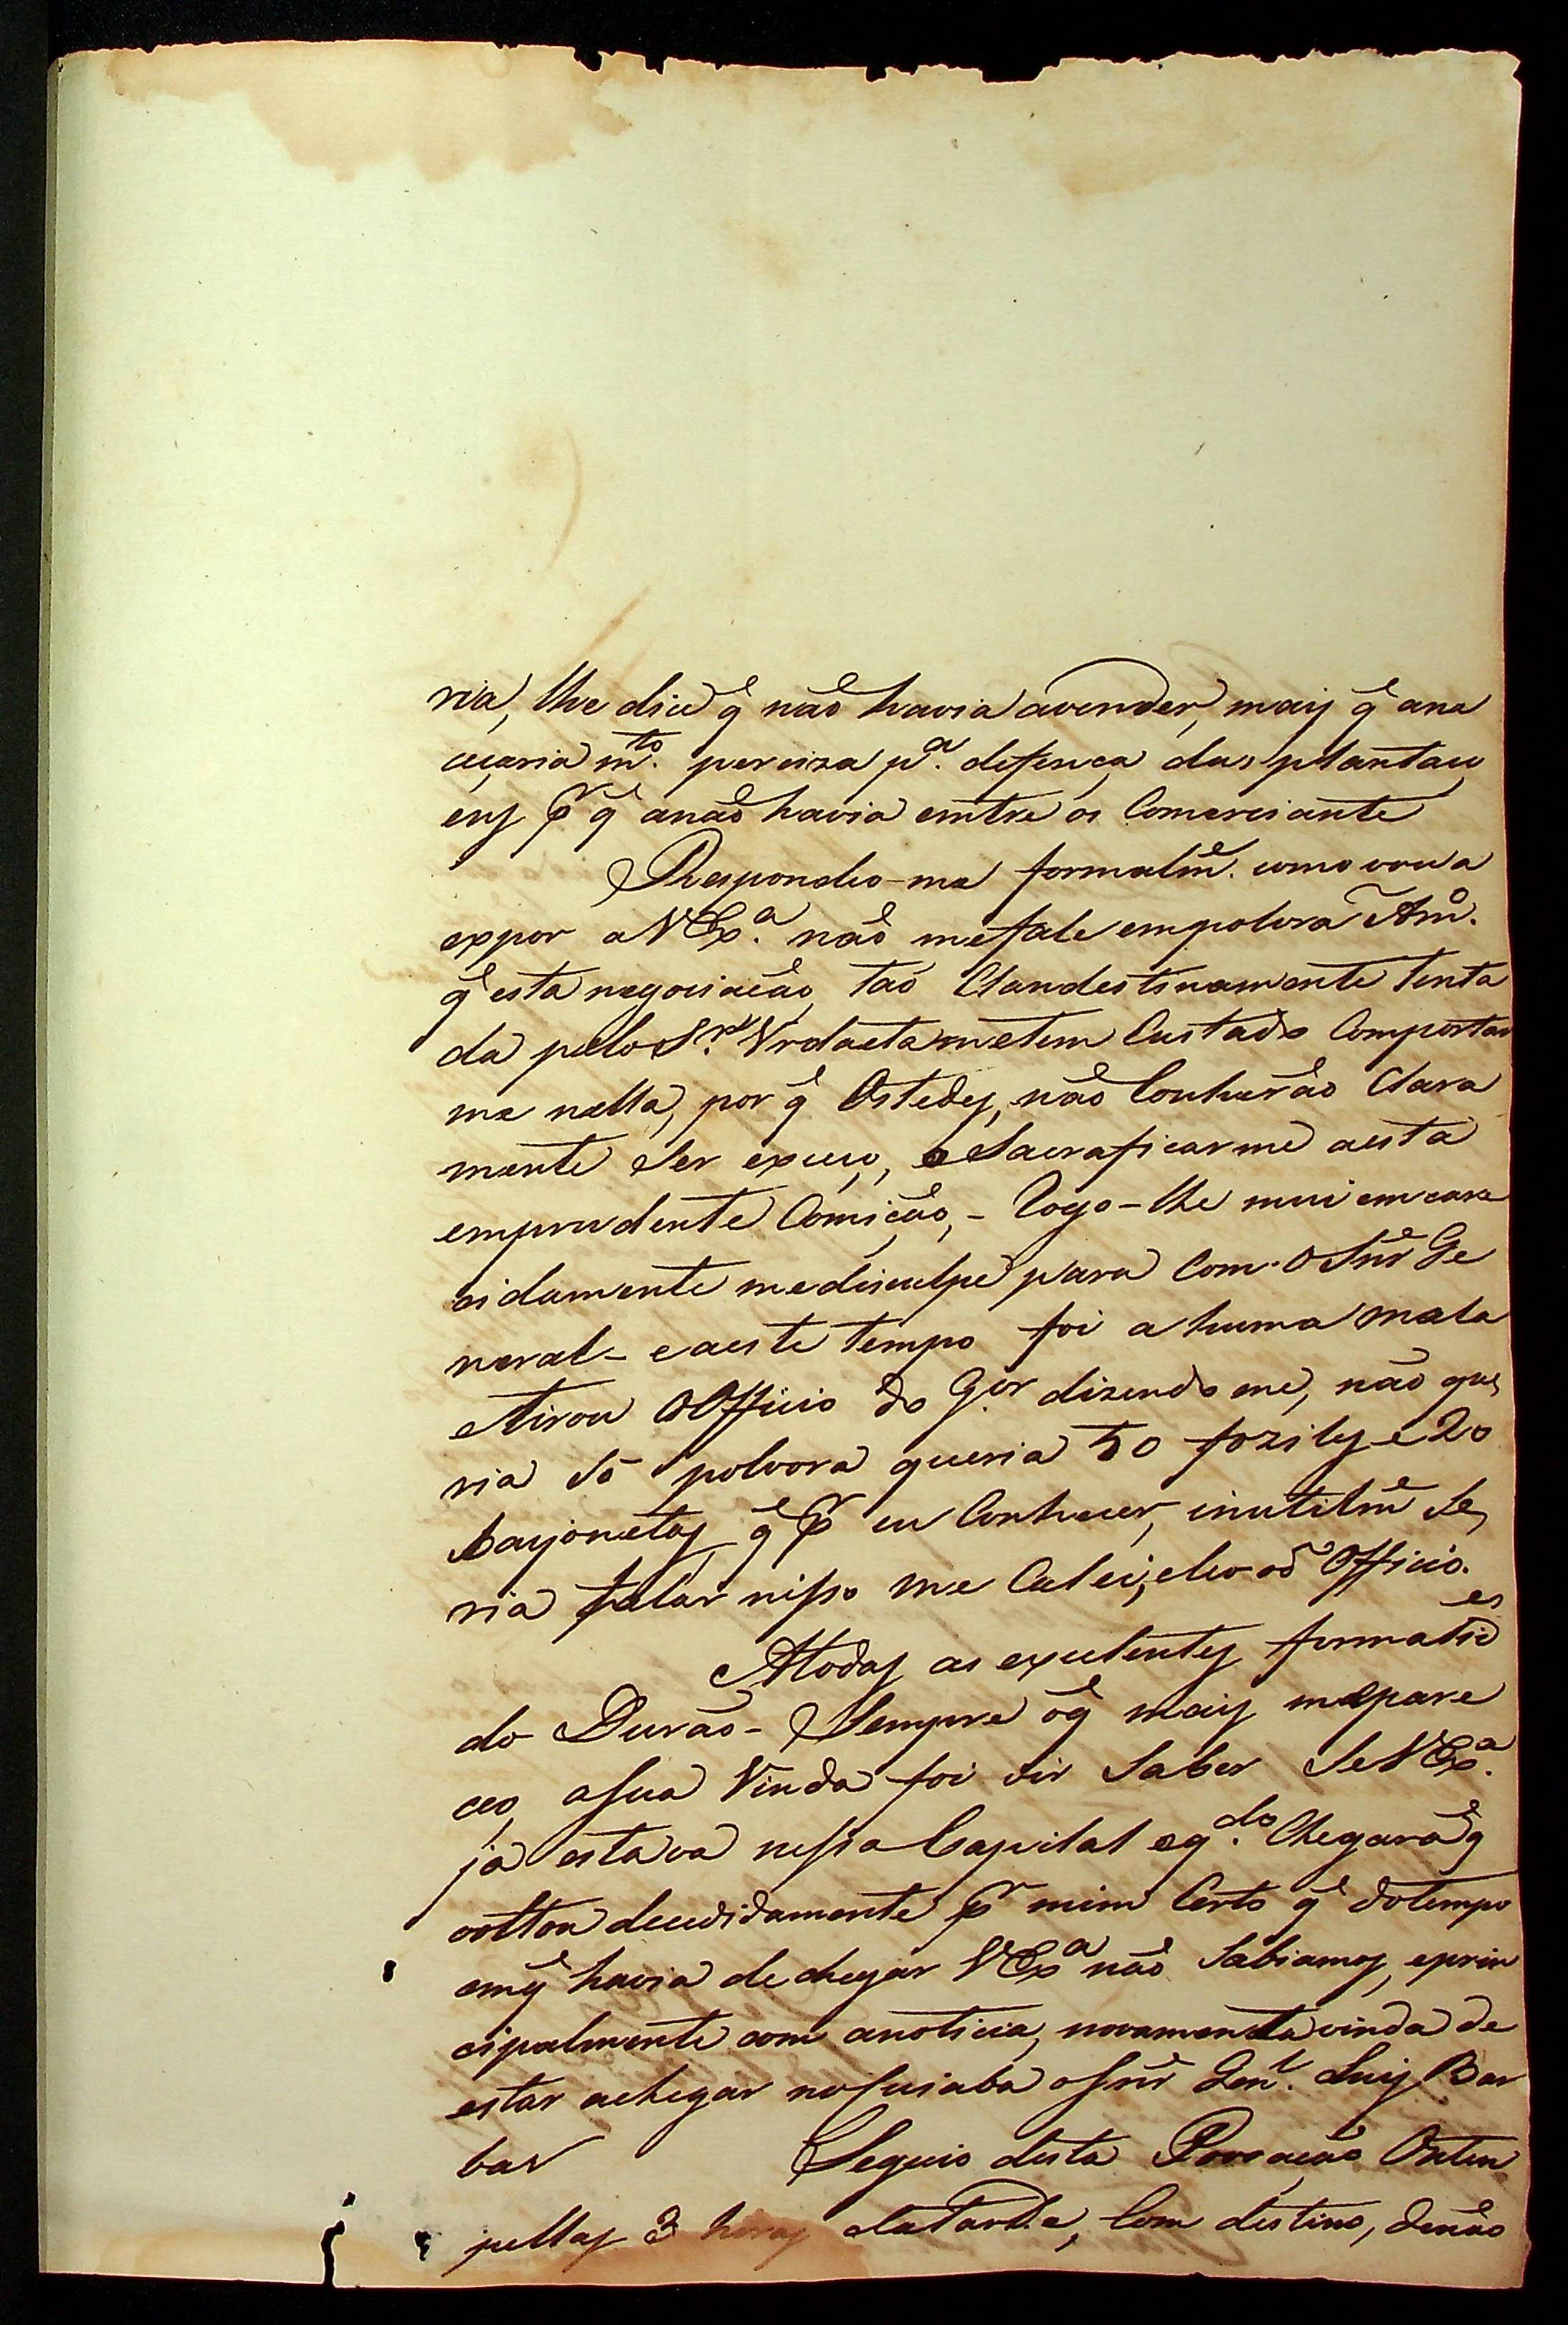 ria, lhe dice q̃ não havia avender, mais q̃ ana
ceçaria m.to perciza p.a defença das plantaco
ens p.r q̃ anão havia emtre os Comerciante
Respondeo-me formalm̃. como vou a
expor a V Ex.a não mefale empolvora Am.o
q̃ esta negociação tão Clandestinamente tenta
da pelo S.r Urdaeta metem Custado Comportar
me nella, por q̃ Ostedes, não Conhecerão Clara
mente Ser exceço, e Sacraficarme aesta
emprudente Comição, - Rogo-lhe mui emcare
cidamente medisculpe para Com o Snr̃ Ge
neral - e aeste tempo foi a huma mala
etirou OOfficio do G.or dizendo me, não que
ria Só polvora queria 50 fozils e 20
bayonetas q̃ p.r eu Conhecer, inutilm̃ Se
ria falar nisso me Calei, eleo od.o Officio.
Atodas as excelentes formalid.es
do Durão - Sempre oq̃ mais mepare
ceo, aSua Vinda foi vir Saber Se V Ex.a
já estava nessa Capital eq.do Chegara q̃
voltou decedidamente p.r mim Certo q̃ dotempo
emq̃ havia dechegar V Ex.a não Sabiamos, eprin
cipalmente com anoticia, novamente vinda de
estar achegar noCuiaba oSnr̃ Gen.l Luis Bar
bar Seguio desta Povoação Ontem
pellas 3 horas datarde, Com destino, denão